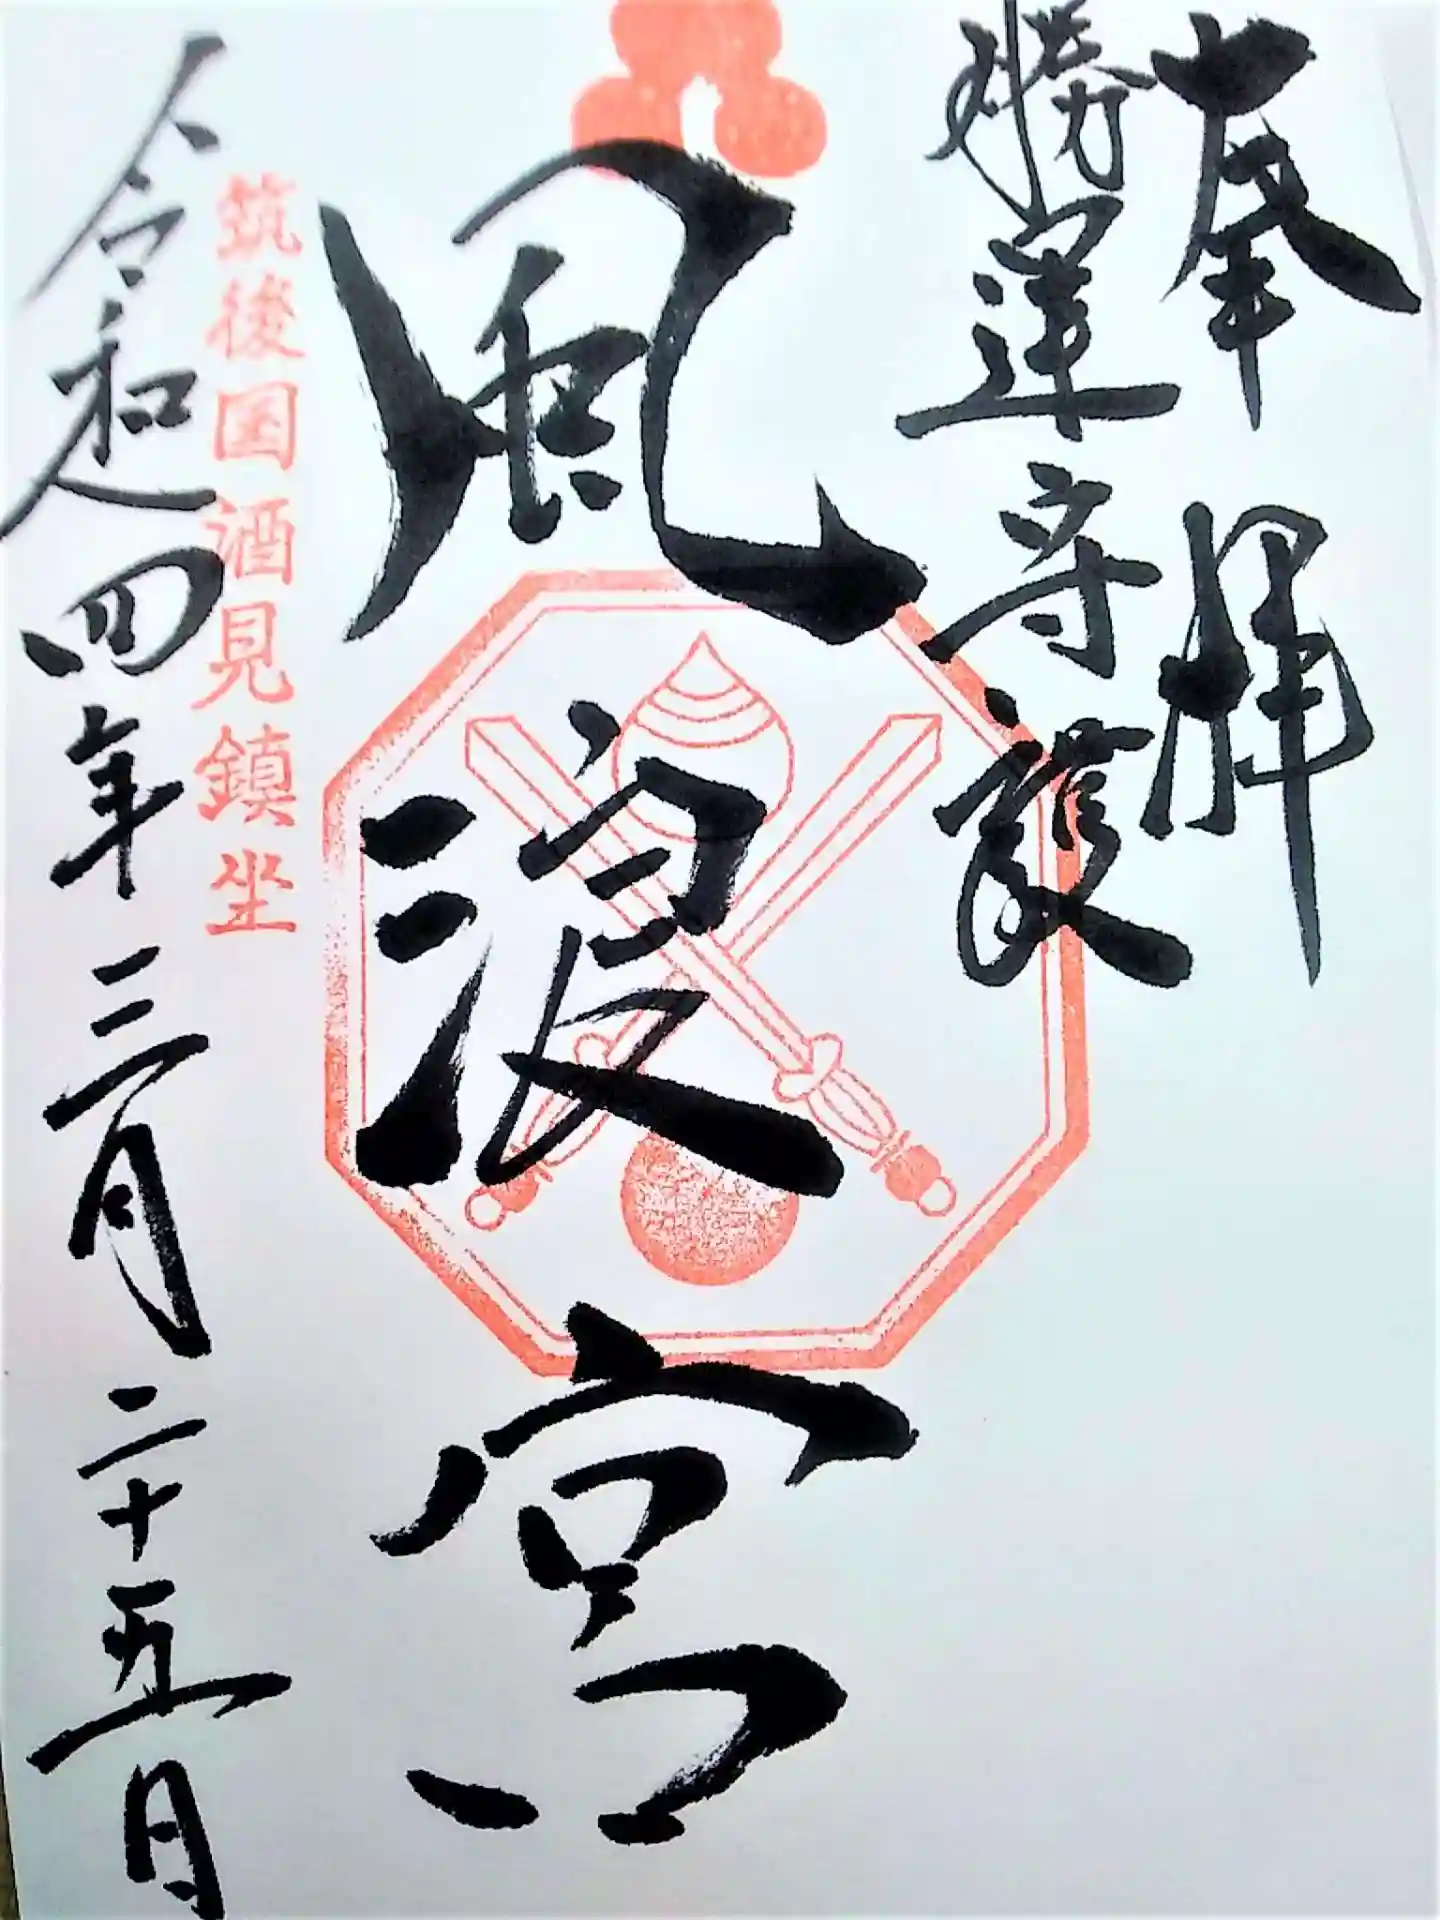 奉拝
勝運守護
風浪宮
筑後国酒見鎮坐
令和四年三月二十五日